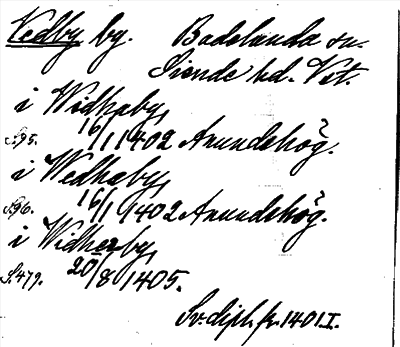 Vedby by. Badelunda sn.
Siende hd. Vst.
i Widhæby,
S.95. 16/1 1402 Anundshög.
i Wedhæby,
S.96. 16/1 1402 Anundshög.
i Widherby,
S.479. 20/8 1405.
Sv. dipl. fr. 1401 I.